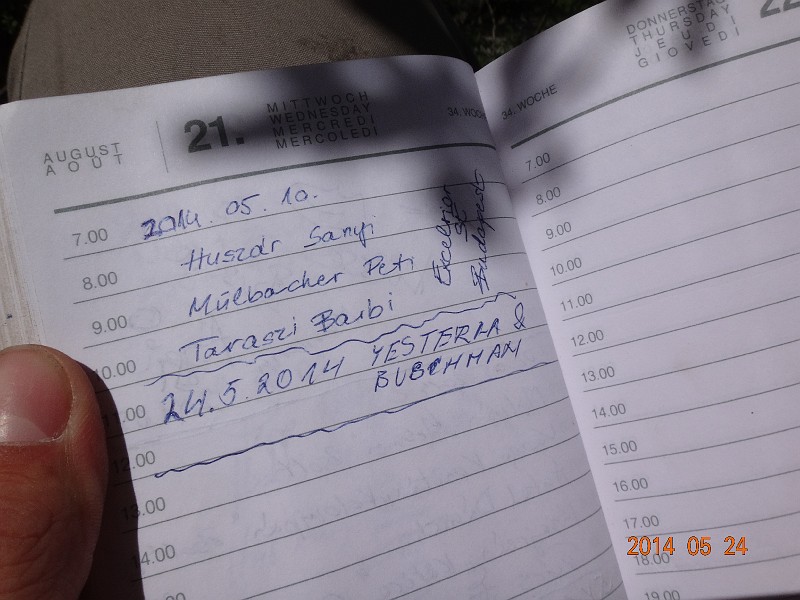 AUGUST
AOUT
21.
MITTWOCH
WEDNESDAY
MERCREDI
MERCOLEDÌ
34. WOCHE
7.00
2014.05.10.
Huszár Sanyi
8.00
Mülbacher Peti
9.00
Taraszi Barbi
Excelsior
SE
Budapest
10.00
24.5.2014 YESTERMA &
BUSCHMAN
11.00
12.00
13.00
14.00
DONNERSTAG
THURSDAY
JEUDI
GIOVEDÌ
22
34. WOCHE
7.00
8.00
9.00
10.00
11.00
12.00
13.00
14.00
15.00
16.00
17.00
18.00
19.00
2014 05 24